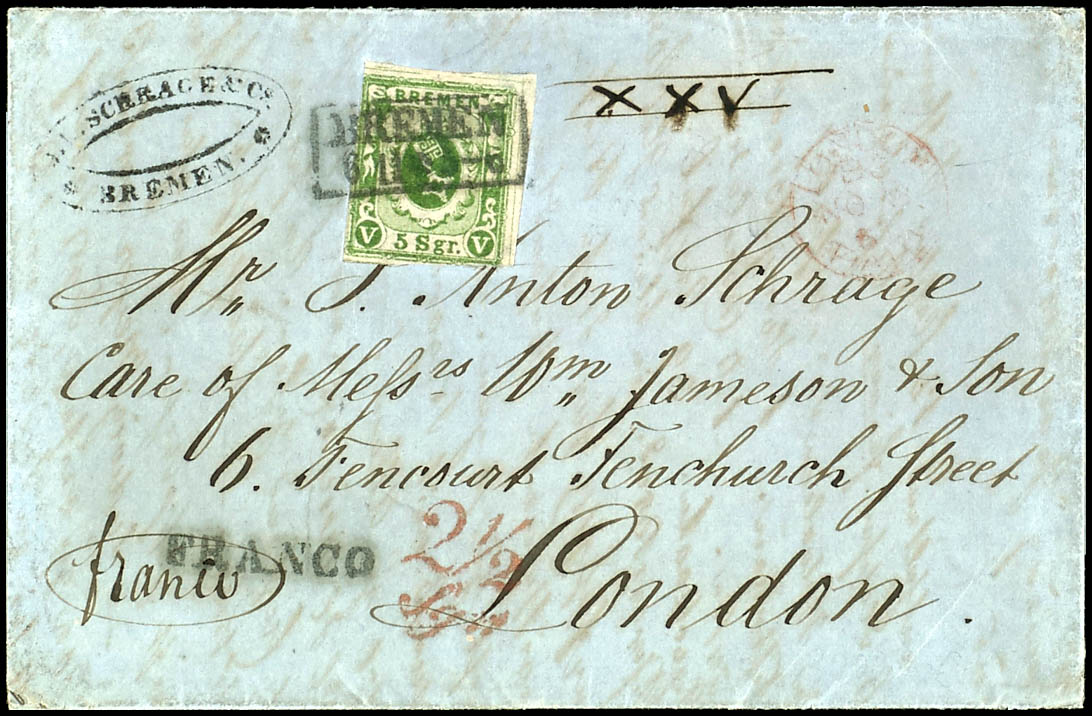 SCHRAGE & Co.
BREMEN.
BREMEN
BREMEN
V 5 Sgr. V
XXV
Mr. J. Anton Schrage
Care of Messrs Wm Jameson & Son
6. Fencourt Fenchurch Street
London.
FRANCO
franco
2 1/2